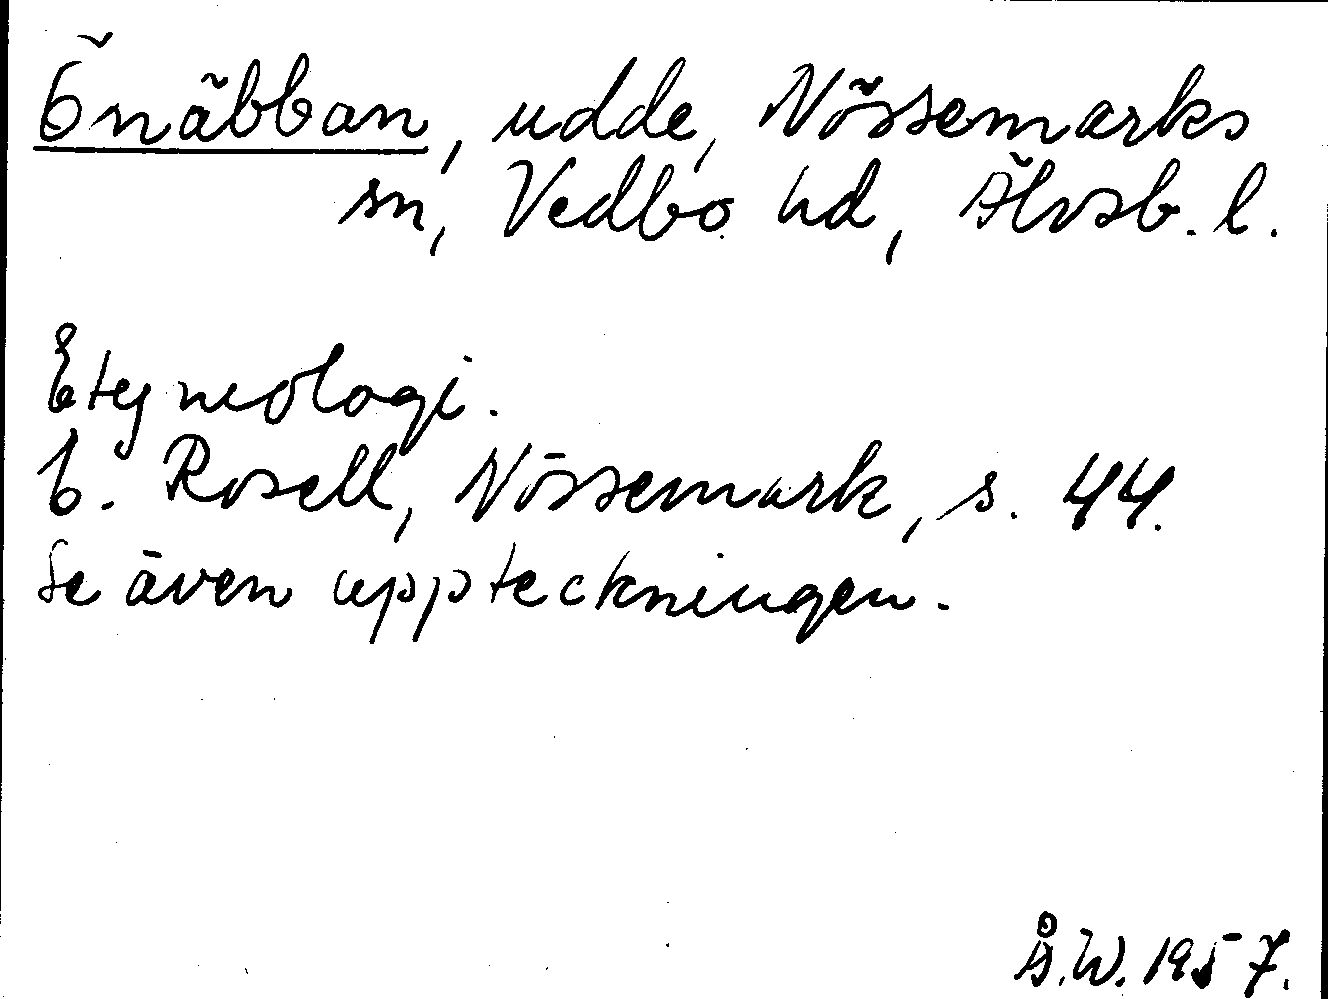 Önäbban, udde, Nössemarks
sn, Vedbo hd, Älvsb. l.
Etymologi.
C. Rosell, Nössemark, s. 44.
Se även uppteckningen.
Å.W. 1957.